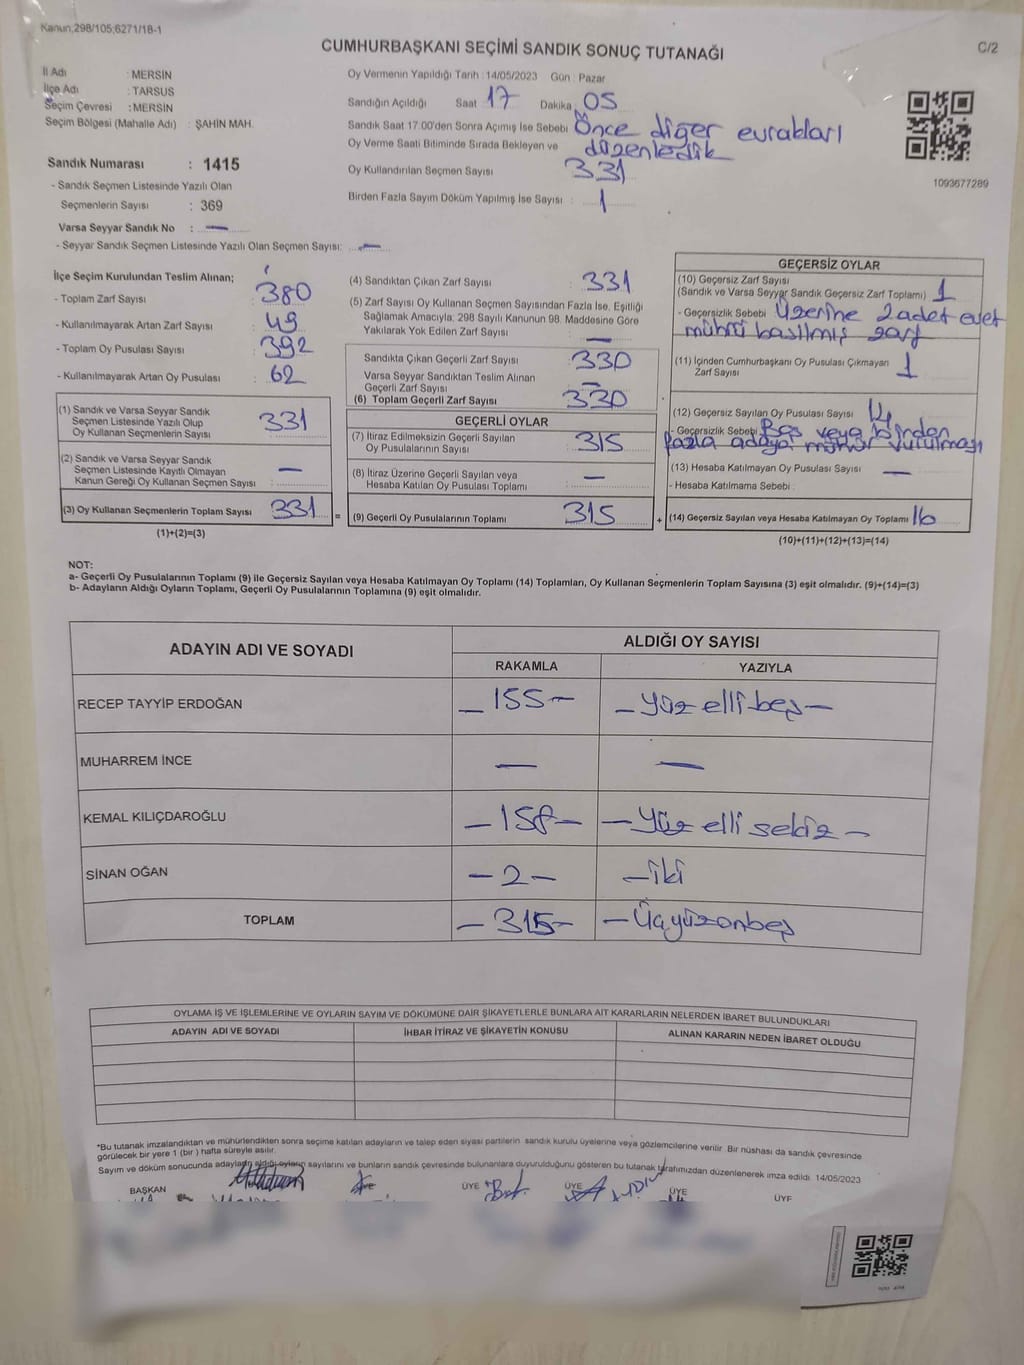 Kanun;298/105;6271/18-1
C/2
CUMHURBAŞKANI SEÇİMİ SANDIK SONUÇ TUTANAĞI
İl Adı : MERSİN
İlçe Adı : TARSUS
Seçim Çevresi : MERSİN
Seçim Bölgesi (Mahalle Adı) : ŞAHİN MAH.
Sandık Numarası : 1415
- Sandık Seçmen Listesinde Yazılı Olan
Seçmenlerin Sayısı : 369
Varsa Seyyar Sandık No : —
- Seyyar Sandık Seçmen Listesinde Yazılı Olan Seçmen Sayısı: —
Oy Vermenin Yapıldığı Tarih : 14/05/2023 Gün : Pazar
Sandığın Açıldığı Saat 17 Dakika 05
Sandık Saat 17:00'den Sonra Açımış İse Sebebi Önce diğer evrakları
düzenledik
Oy Verme Saati Bitiminde Sırada Bekleyen ve
Oy Kullandırılan Seçmen Sayısı 331
Birden Fazla Sayım Döküm Yapılmış İse Sayısı : 1
1093677289
İlçe Seçim Kurulundan Teslim Alınan;
- Toplam Zarf Sayısı : 380
- Kullanılmayarak Artan Zarf Sayısı : 49
- Toplam Oy Pusulası Sayısı : 392
- Kullanılmayarak Artan Oy Pusulası : 62
(1) Sandık ve Varsa Seyyar Sandık
Seçmen Listesinde Yazılı Olup
Oy Kullanan Seçmenlerin Sayısı : 331
(2) Sandık ve Varsa Seyyar Sandık
Seçmen Listesinde Kayıtlı Olmayan
Kanun Gereği Oy Kullanan Seçmen Sayısı : —
(3) Oy Kullanan Seçmenlerin Toplam Sayısı 331 =
(1)+(2)=(3)
(4) Sandıktan Çıkan Zarf Sayısı : 331
(5) Zarf Sayısı Oy Kullanan Seçmen Sayısından Fazla İse, Eşitliği
Sağlamak Amacıyla; 298 Sayılı Kanunun 98. Maddesine Göre
Yakılarak Yok Edilen Zarf Sayısı : —
Sandıkta Çıkan Geçerli Zarf Sayısı : 330
Varsa Seyyar Sandıktan Teslim Alınan
Geçerli Zarf Sayısı : —
(6) Toplam Geçerli Zarf Sayısı : 330
GEÇERLİ OYLAR
(7) İtiraz Edilmeksizin Geçerli Sayılan
Oy Pusulalarının Sayısı : 315
(8) İtiraz Üzerine Geçerli Sayılan veya
Hesaba Katılan Oy Pusulası Toplamı : —
(9) Geçerli Oy Pusulalarının Toplamı : 315 +
GEÇERSİZ OYLAR
(10) Geçersiz Zarf Sayısı
(Sandık ve Varsa Seyyar Sandık Geçersiz Zarf Toplamı) 1
- Geçersizlik Sebebi : Üzerine 2 adet evet
mührü basılmış zarf
(11) İçinden Cumhurbaşkanı Oy Pusulası Çıkmayan
Zarf Sayısı : 1
(12) Geçersiz Sayılan Oy Pusulası Sayısı : 14
- Geçersizlik Sebebi Boş veya birden
fazla adaya mühür vurulması
(13) Hesaba Katılmayan Oy Pusulası Sayısı : —
- Hesaba Katılmama Sebebi :
(14) Geçersiz Sayılan veya Hesaba Katılmayan Oy Toplamı 16
(10)+(11)+(12)+(13)=(14)
NOT:
a- Geçerli Oy Pusulalarının Toplamı (9) ile Geçersiz Sayılan veya Hesaba Katılmayan Oy Toplamı (14) Toplamları, Oy Kullanan Seçmenlerin Toplam Sayısına (3) eşit olmalıdır. (9)+(14)=(3)
b- Adayların Aldığı Oyların Toplamı, Geçerli Oy Pusulalarının Toplamına (9) eşit olmalıdır.
ADAYIN ADI VE SOYADI ALDIĞI OY SAYISI
RAKAMLA YAZIYLA
RECEP TAYYİP ERDOĞAN — 155 — — Yüz elli beş —
MUHARREM İNCE — —
KEMAL KILIÇDAROĞLU — 158 — — Yüz elli sekiz —
SİNAN OĞAN — 2 — — iki
TOPLAM — 315 — — Üçyüzonbeş
OYLAMA İŞ VE İŞLEMLERİNE VE OYLARIN SAYIM VE DÖKÜMÜNE DAİR ŞİKAYETLERLE BUNLARA AİT KARARLARIN NELERDEN İBARET BULUNDUKLARI
ADAYIN ADI VE SOYADI İHBAR İTİRAZ VE ŞİKAYETİN KONUSU ALINAN KARARIN NEDEN İBARET OLDUĞU
*Bu tutanak imzalandıktan ve mühürlendikten sonra seçime katılan adayların ve talep eden siyasi partilerin sandık kurulu üyelerine veya gözlemcilerine verilir. Bir nüshası da sandık çevresinde
görülecek bir yere 1 (bir) hafta süreyle asılır.
Sayım ve döküm sonucunda adayların aldığı oyların sayılarını ve bunların sandık çevresinde bulunanlara duyurulduğunu gösteren bu tutanak tarafımızdan düzenlenerek imza edildi. 14/05/2023
BAŞKAN ÜYE ÜYE ÜYE ÜYE